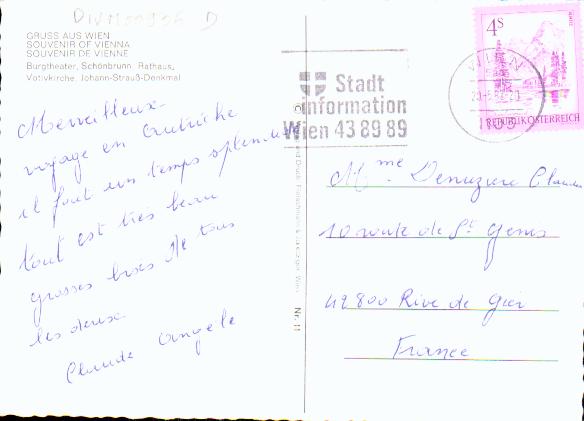 DIVM00936 D
GRUSS AUS WIEN
SOUVENIR OF VIENNA
SOUVENIR DE VIENNE
Burgtheater, Schönbrunn, Rathaus,
Votivkirche, Johann-Strauß-Denkmal
Merveilleux
voyage en Autriche
il fait un temps splendide
tout est très beau
grosses bises de tous
les deux
Claude Angele
Nr. 11
Stadt
information
Wien 43 89 89
WIEN
1103
4S
REPUBLIK ÖSTERREICH
Mme Denuzière Claude
10 route de St Genis
42800 Rive de Gier
France